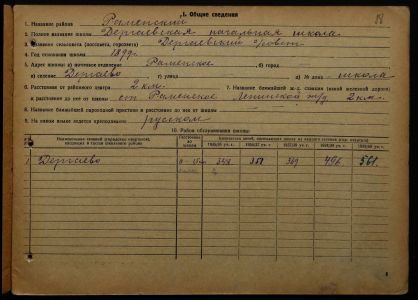 18
1. Общие сведения
1. Название района Раменский
2. Полное название школы Дергаевская начальная школа
3. Название сельсовета (поссовета, горсовета) Дергаевский с/совет
4. Год основания школы 1899 г.
5. Адрес: а) почтовое отделение Раменское б) город —
в) селение Дергаево г) д) № дома школа
6. Расстояние от районного центра 2 км. 7. Название ближайшей ж.-д. станции (какой железной дороги)
и расстояние до нее от школы ст. Раменское Ленинской ж/д. 2 км.
8. Название ближайшей пароходной пристани и расстояние до нее от школы
9. На каком языке ведется преподавание русском
10. Район обслуживания школы
Расстояние до школы
1935/36 уч. г. 1936/37 уч. г. 1937/38 уч. г. 1938/39 уч. г.
1 Дергаево 351 369 496 561